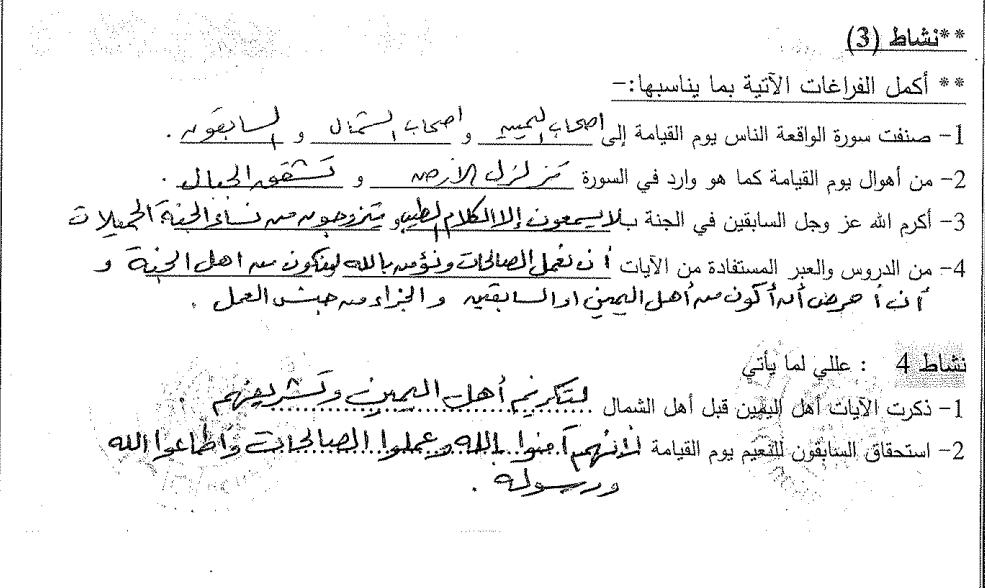 **نشاط (3)
** أكمل الفراغات الآتية بما يناسبها:-
1- صنفت سورة الواقعة الناس يوم القيامة إلى اصحاب اليمين و اصحاب الشمال و السابقون .
2- من أهوال يوم القيامة كما هو وارد في السورة تزلزل الأرض و تشقق الجبال .
3- أكرم الله عز وجل السابقين في الجنة بـ لا يسمعون إلا الكلام الطيب و يتزوجون من نساء الجنة الجميلات
4- من الدروس والعبر المستفادة من الآيات أن نعمل الصالحات ونؤمن بالله لنكون من اهل الجنة و
أن أحرص أن أكون من أهل اليمين او السابقين و الجزاء من جنس العمل .
نشاط 4 : عللي لما يأتي
1- ذكرت الآيات أهل اليمين قبل أهل الشمال لتكريم أهل اليمين وتشريفهم .
2- استحقاق السابقون للنعيم يوم القيامة لأنهم آمنوا بالله وعملوا الصالحات وأطاعوا الله
ورسوله .